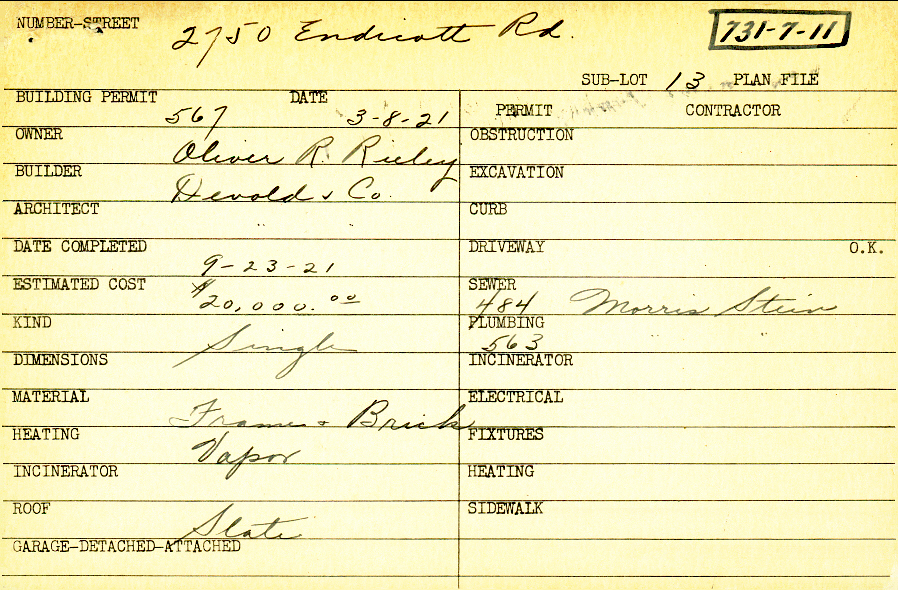 NUMBER-STREET 2750 Endicott Rd. 731-7-11
SUB-LOT 13 PLAN FILE
BUILDING PERMIT 567 DATE 3-8-21
OWNER Oliver R. Rieley
BUILDER Devold & Co.
ARCHITECT " "
DATE COMPLETED 9-23-21
ESTIMATED COST $20,000.00
KIND Single
DIMENSIONS
MATERIAL Frame & Brick
HEATING Vapor
INCINERATOR
ROOF Slate
GARAGE-DETACHED-ATTACHED
PERMIT CONTRACTOR
OBSTRUCTION
EXCAVATION
CURB
DRIVEWAY O.K.
SEWER 484 Morris Stein
PLUMBING 563 " "
INCINERATOR
ELECTRICAL
FIXTURES
HEATING
SIDEWALK